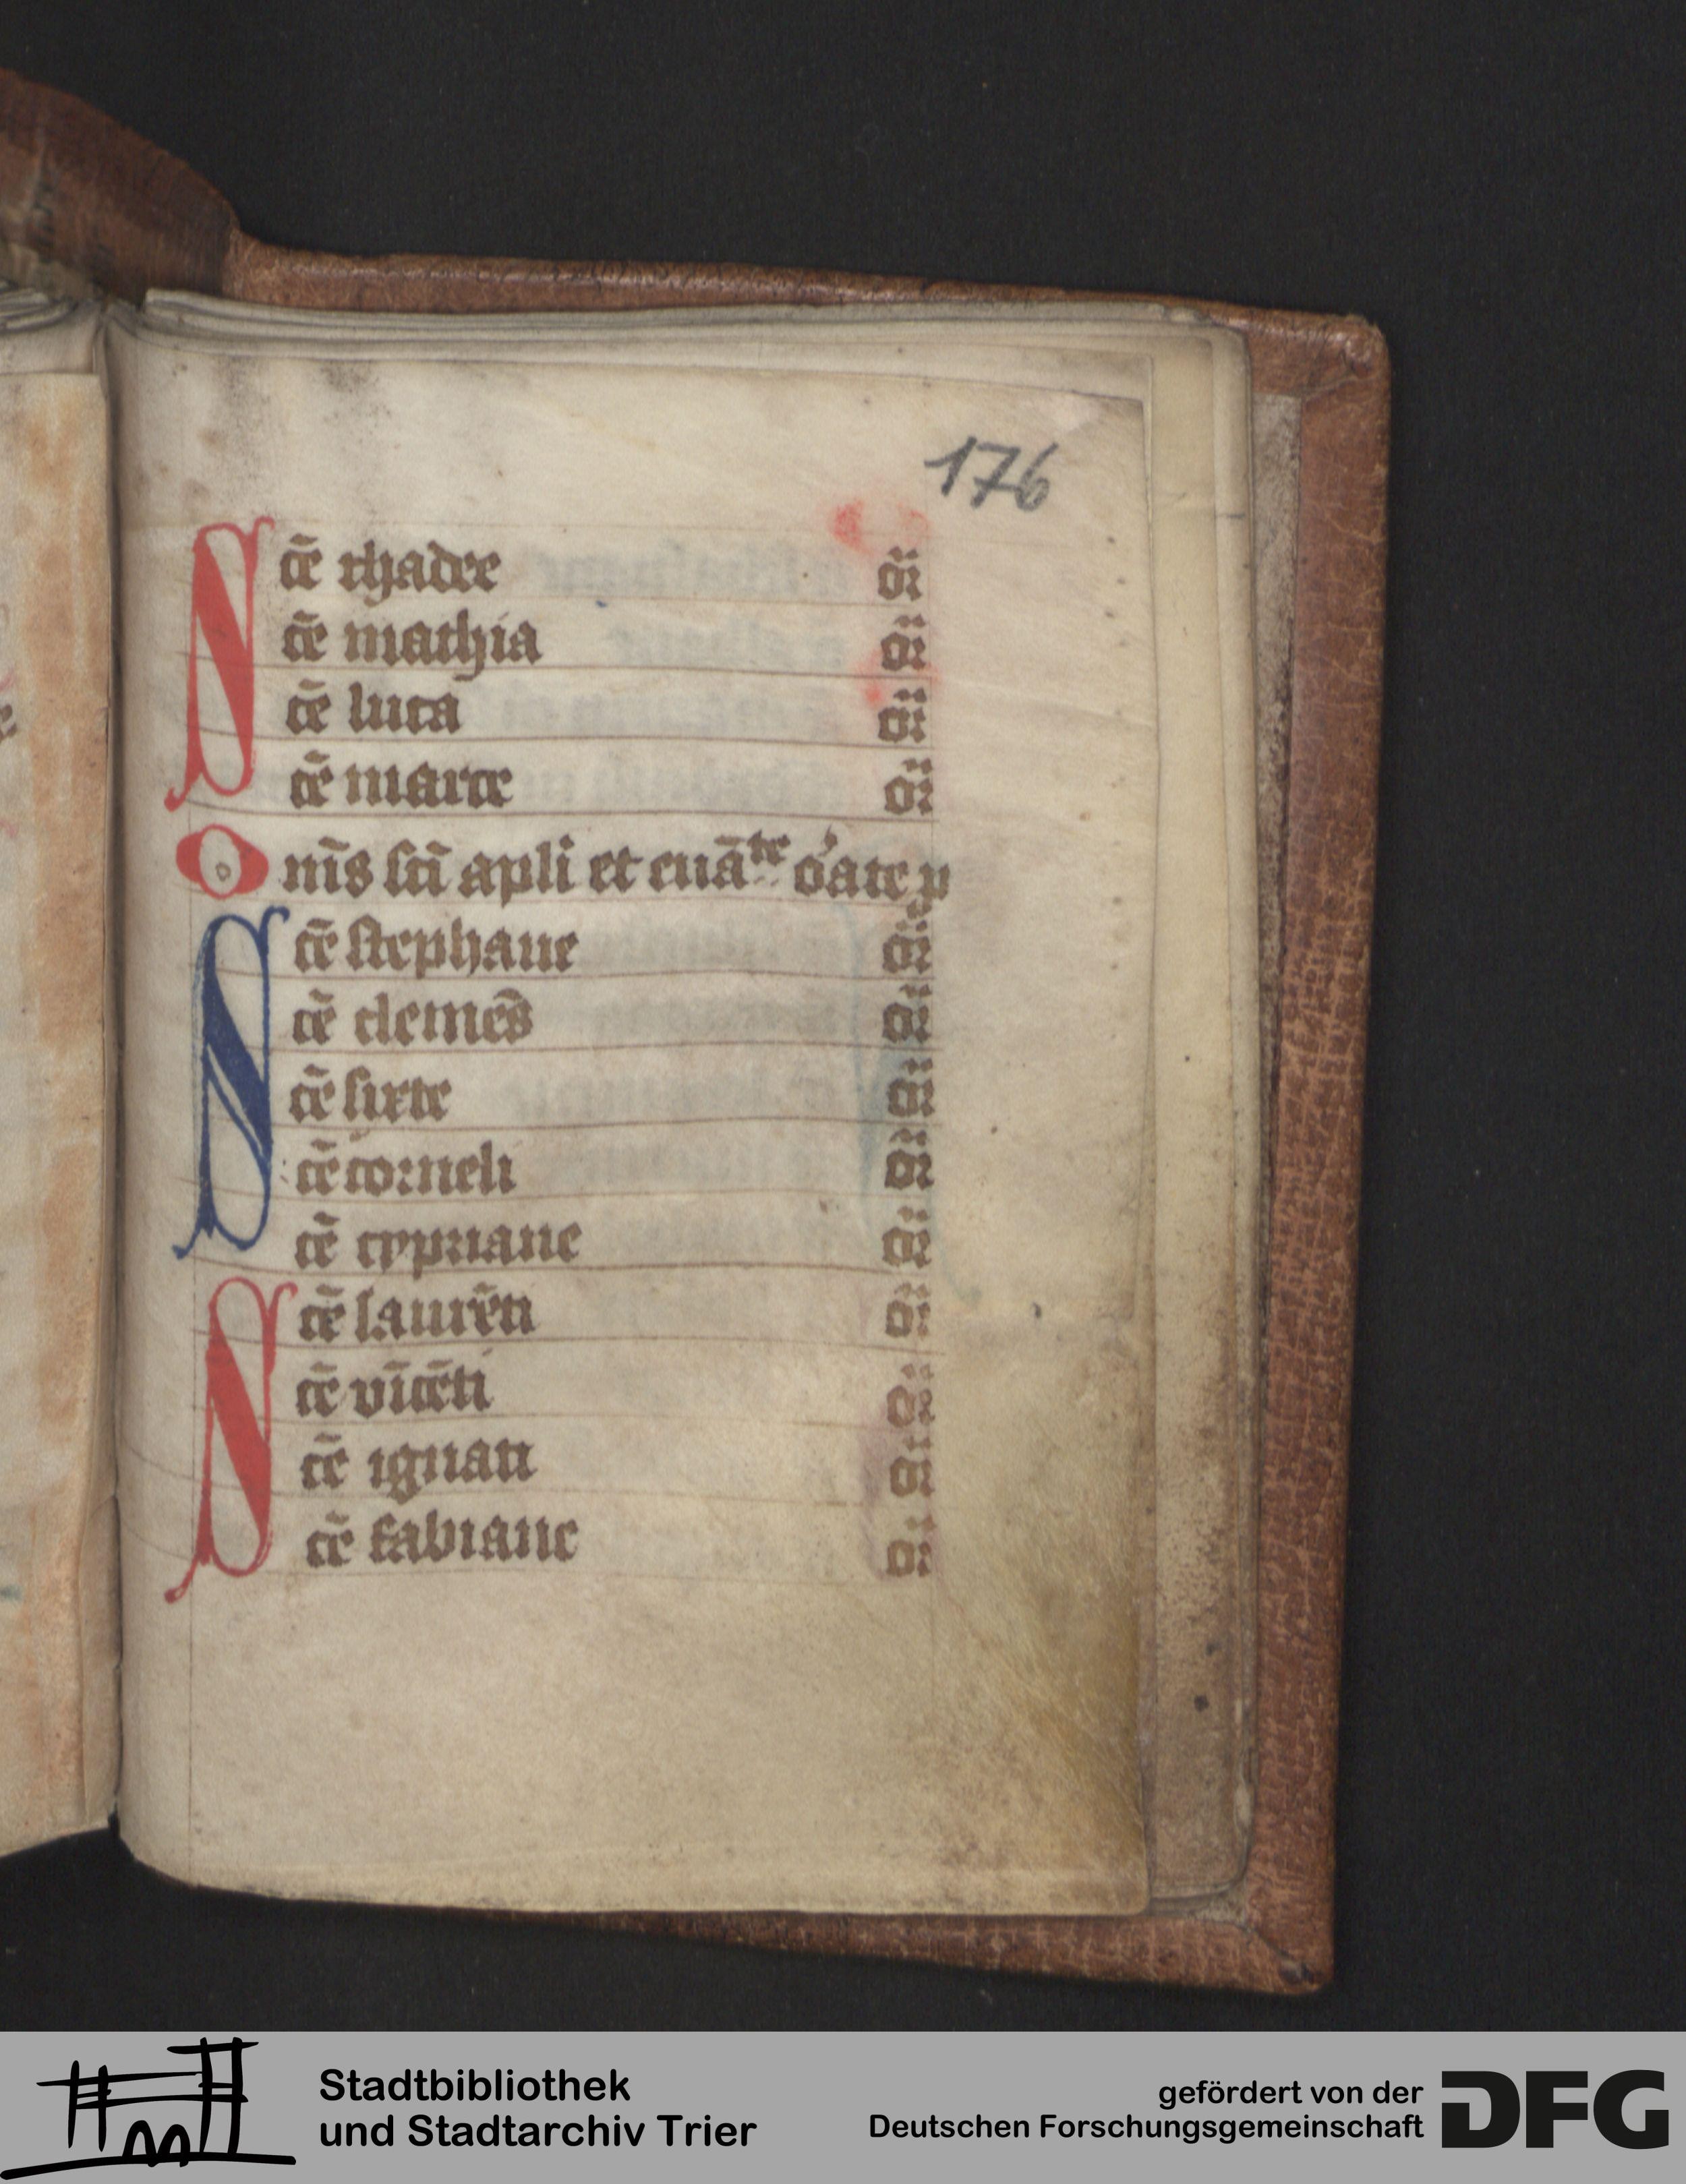 176
Scē thadee or̄
cē mathia or̄
cē luca or̄
cē marce or̄
Om̄s sc̄i apl̄i et euāte orate p
Scē stephane or̄
cē clemēs or̄
cē sixte or̄
cē corneli or̄
cē cypriane or̄
Scē laurēti or̄
cē vīcēti or̄
cē ignati or̄
cē fabiane or̄
Stadtbibliothek
und Stadtarchiv Trier
gefördert von der
Deutschen Forschungsgemeinschaft
DFG